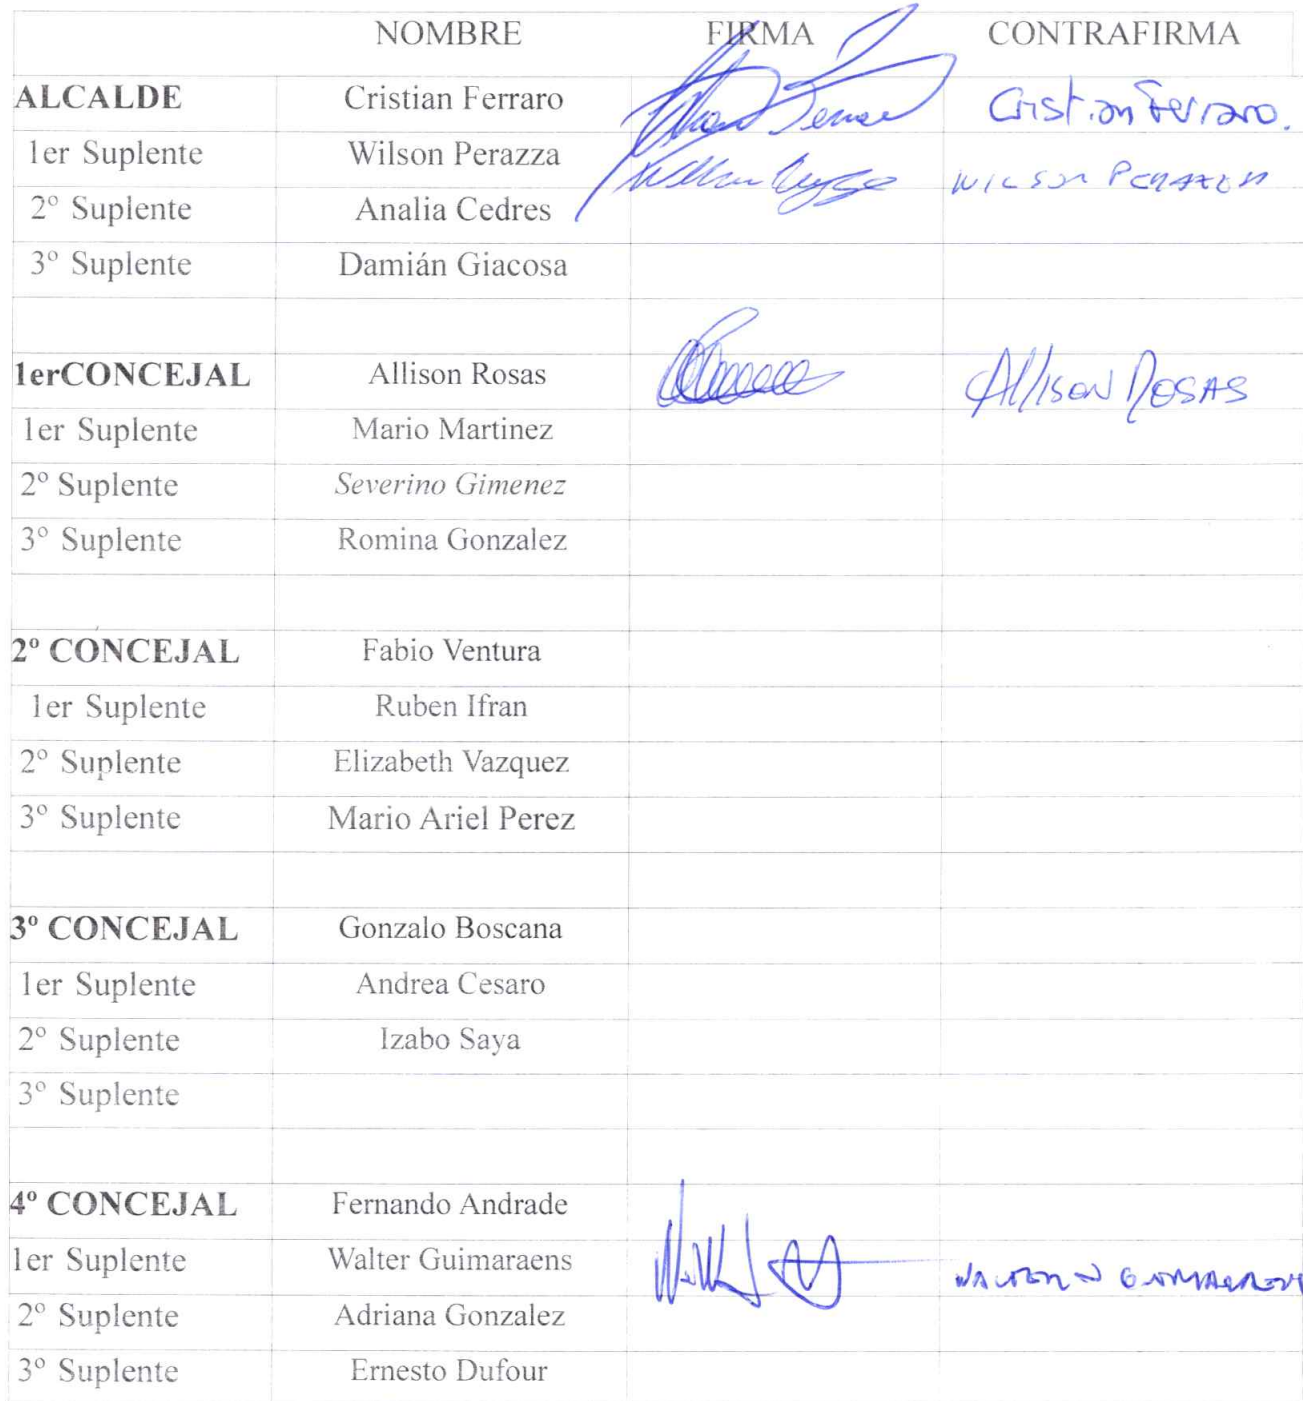 NOMBRE FIRMA CONTRAFIRMA
ALCALDE Cristian Ferraro Cristian Ferraro.
1er Suplente Wilson Perazza WILSON PERAZZA
2º Suplente Analia Cedres
3º Suplente Damián Giacosa
1erCONCEJAL Allison Rosas Allison Rosas
1er Suplente Mario Martinez
2º Suplente Severino Gimenez
3º Suplente Romina Gonzalez
2º CONCEJAL Fabio Ventura
1er Suplente Ruben Ifran
2º Suplente Elizabeth Vazquez
3º Suplente Mario Ariel Perez
3º CONCEJAL Gonzalo Boscana
1er Suplente Andrea Cesaro
2º Suplente Izabo Saya
3º Suplente
4º CONCEJAL Fernando Andrade
1er Suplente Walter Guimaraens WALTER N GUIMARAENS
2º Suplente Adriana Gonzalez
3º Suplente Ernesto Dufour